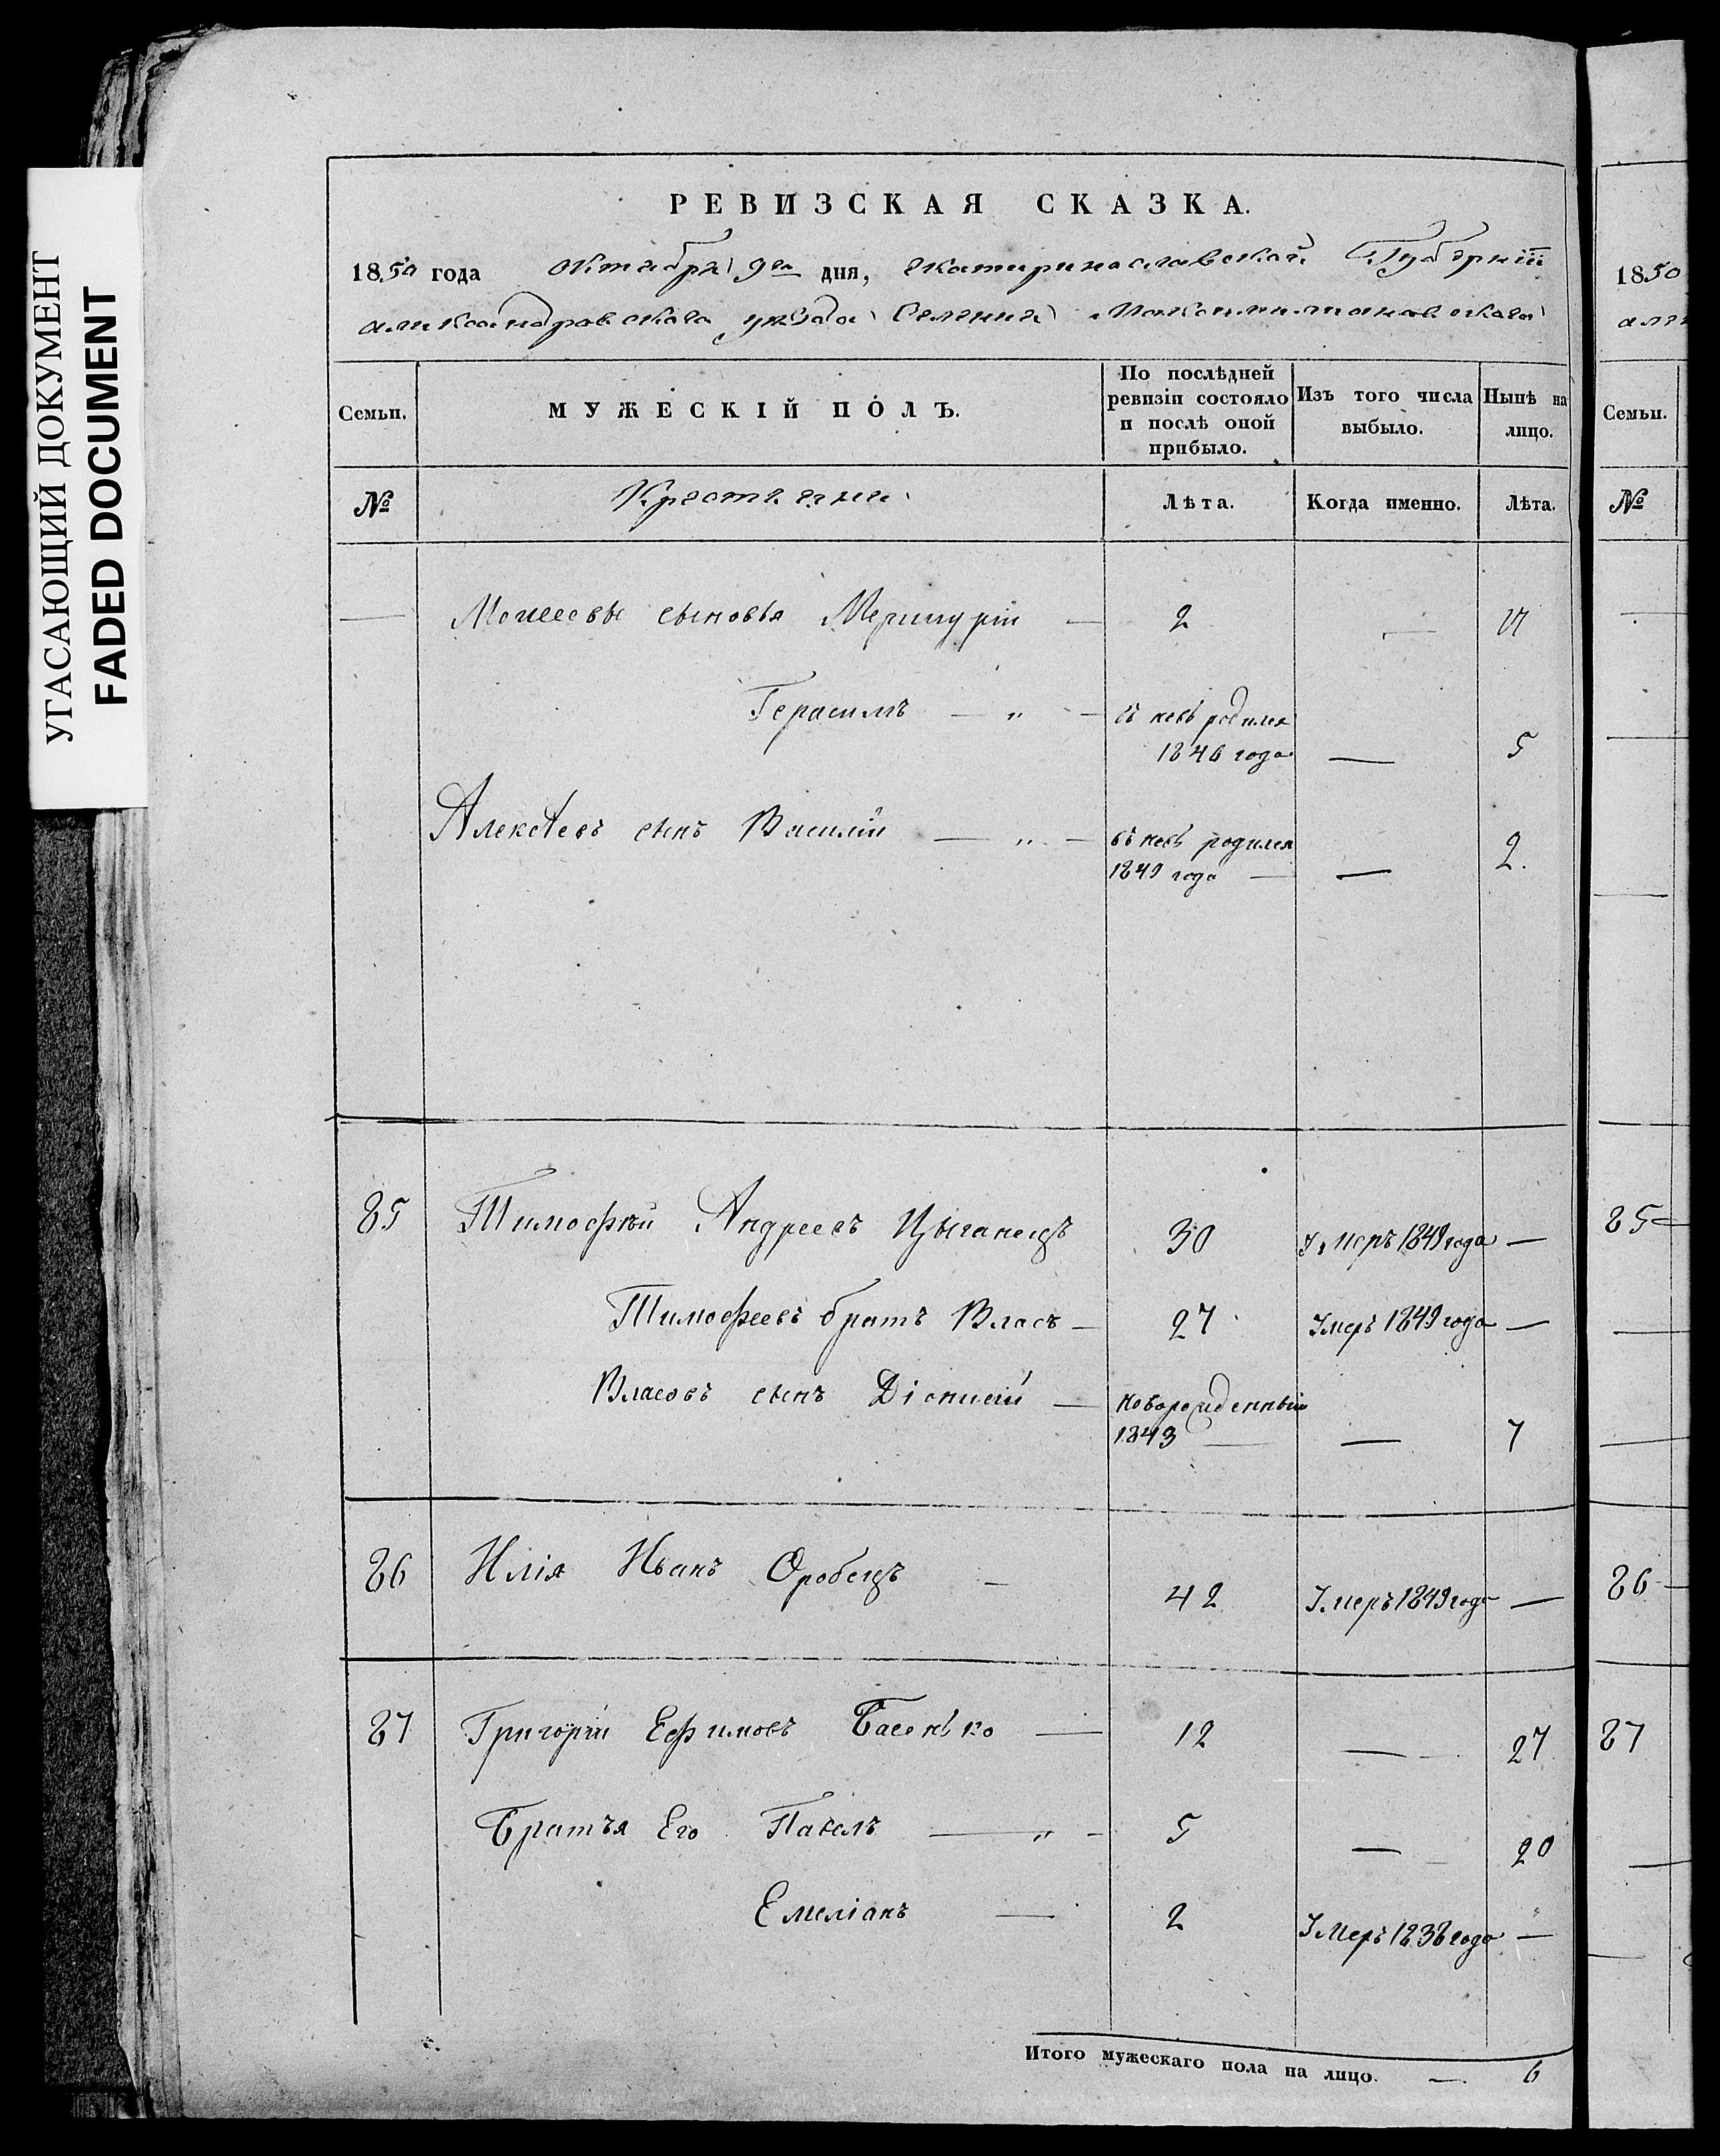 УГАСАЮЩИЙ ДОКУМЕНТ
FADED DOCUMENT
РЕВИЗСКАЯ СКАЗКА.
1850 года Октября 9го дня, Екатеринославской Губерніи
александровского уезда Селения
Семьи.
МУЖЕСКІЙ ПОЛЪ.
По послѣдней ревизіи состояло и послѣ оной прибыло.
Изъ того числа выбыло.
Нынѣ на лицо.
№
Крестьяне
Лѣта.
Когда именно.
Лѣта.
Моисеовы сыновья Меркурій — 2 —
Герасимъ — „ —
родился
1846 года — 5
Алексѣевъ сынъ Василій — „ —
родился
1849 года — — 2.
85 Тимофѣй Андреевъ Цыганецъ 30 Умеръ 1849 года —
Тимофеевъ братъ Власъ — 27 Умеръ 1849 года —
Власовъ сынъ Діонисій — новорожденный
1843 — — 7
86 Илія Иванъ Оробецъ — 42 Умеръ 1849 года —
87 Григорій Ефимовъ Басенько — 12 — 27
Братья Его Павелъ — „ — 5 — 20
Емеліанъ — 2 Умеръ 1838 года —
Итого мужескаго пола на лицо. — 6
1850
Семьи.
№
85
86
87